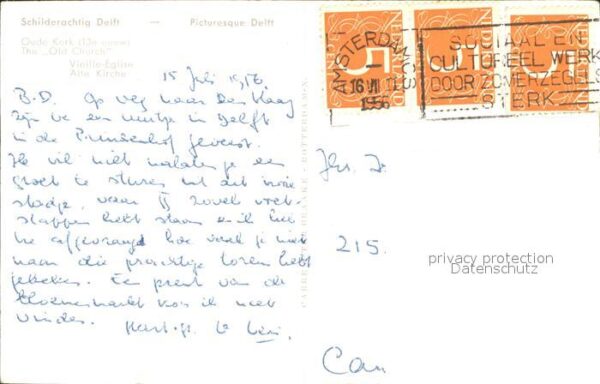 Schilderachtig Delft — Picturesque Delft
Oude Kerk (13e eeuw)
The "Old Church"
Vieille-Église
Alte Kirche
15 Juli 1956.
B.D. Op weg naar Den Haag
zijn we een uurtje in Delft
in de Prinsenhof geweest.
Ik wil niet nalaten je een
groet te sturen uit dit mooie
stadje, waar jij zovele voet-
stappen hebt staan en ik heb
me afgevraagd hoe vaak je niet
naar die prachtige toren hebt
gekeken. Een prent van de
Bloemenmarkt kon ik niet
vinden. Hart. gr.
NEDERLAND
5
NEDERLAND
5
NEDERLAND
5
AMSTERDAM CS
16 VII
1956
SOCIAAL EN
CULTUREEL WERK
DOOR ZOMERZEGELS
STERK
215.
privacy protection
Datenschutz
Can
ROTTERDAM